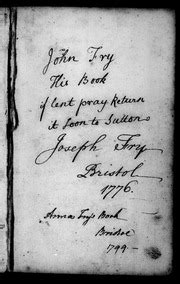 John Fry
His Book
if lent pray Return
it soon to Sutton
Joseph Fry
Bristol
1776.
Anna Frys Book
Bristol
1799